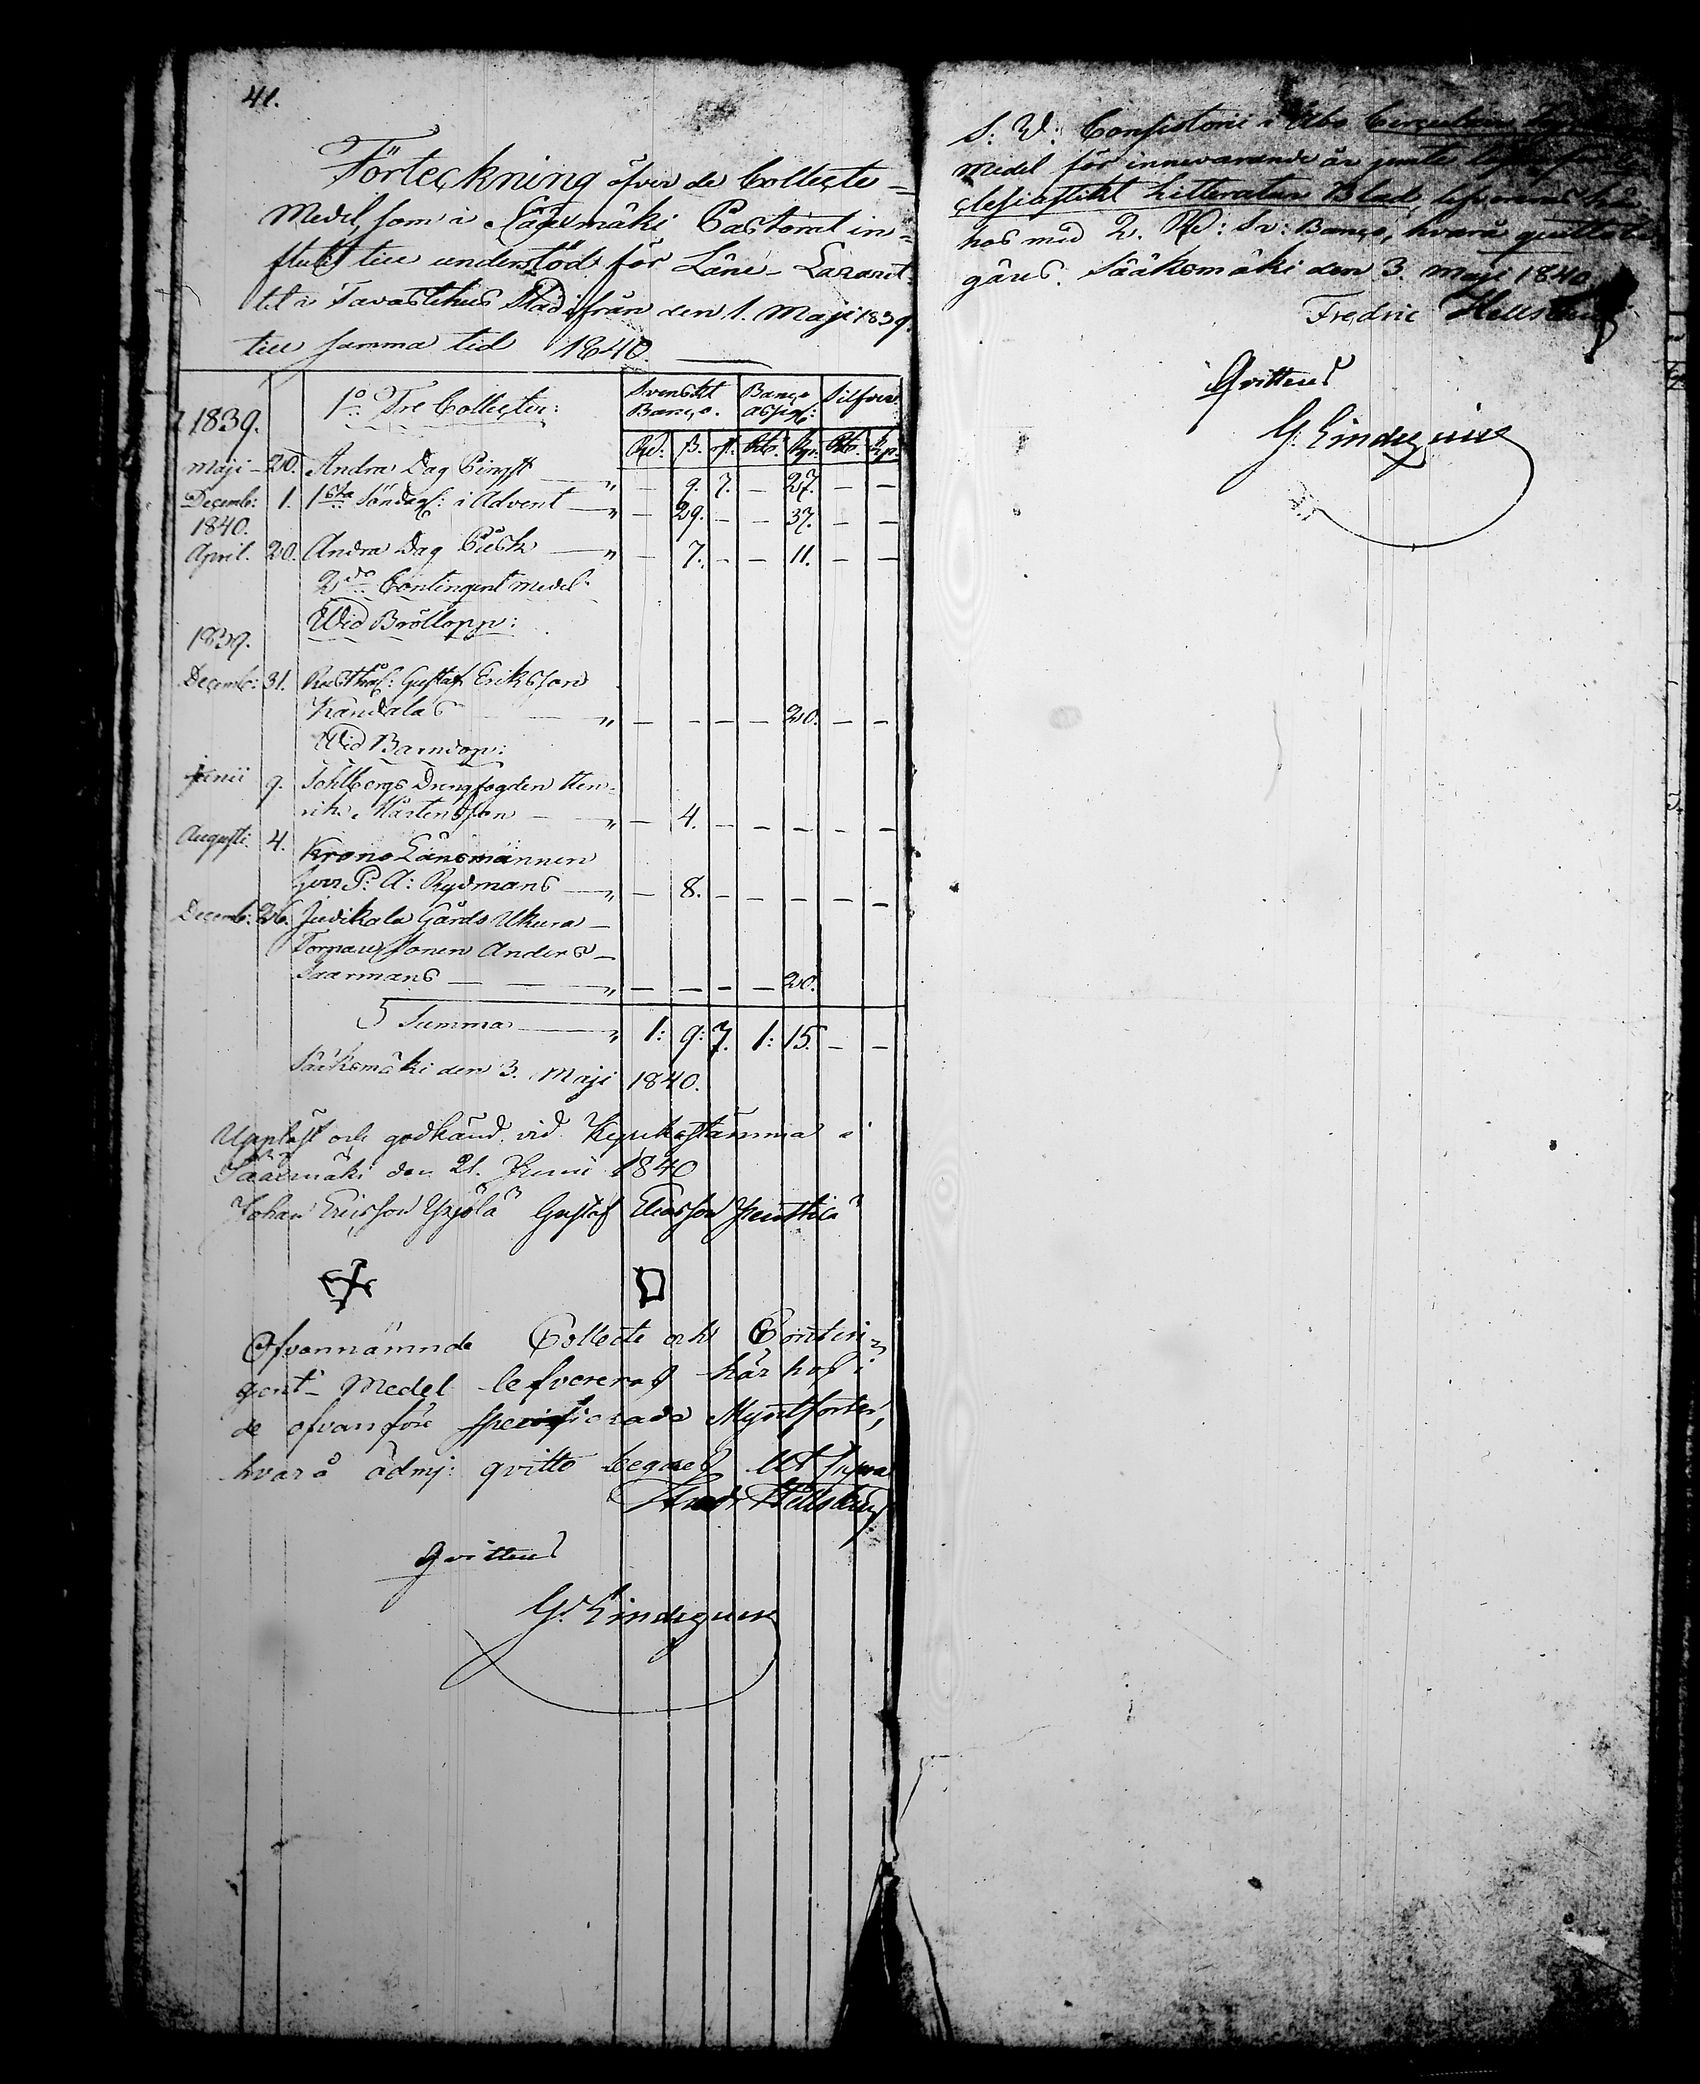 41.
Förteckning öfver de Collecte-
Medel, som i Sääxmäki Pastorat in-
flutit till understöd för Läne-Lazaret-
tet i Tavastehus Stad ifrån den 1. Maji 1839.
till samma tid 1840.
1839. 1o Tre Collecter: Svenskt Banço. Banço assign: Silfver.
Rd: ß. rst: Rb. Kp. Rb. Kp.
Maji 20. Andra Dag Pingst " — 9. 7. — 27. — —
Decemb: 1. 1sta Söndag: i Advent " — 29. — — 37. — —
1840.
April. 20. Andra Dag Påsk " — 7. — — 11. — —
2do Contingent medel.
Wid Bröllopp:
1839.
Decemb: 31. Rusth: Gustaf Eriksson
Kandalas " — — — — 20. — —
Wid Barndop:
Junii 9. Sohlbergs Drengfogden Hen-
rik Mårtensson " — 4. — — — — —
Augusti. 4. Krono Länsmannen
Herr P: A: Rydmans " — 8. — — — — —
Decemb: 26. Judikala Gårds Ukura
Torpare Sonen Anders
Saarmans " — — — — 20.
Summa " 1: 9: 7. 1: 15. — —
Sääksmäki den 3. Maji 1840.
Uppläst och godkänd vid Kyrkostämma i
Sääxmäki den 21. Junii 1840
Johan Ericsson Yrjölä Gustaf Eliasson Penttilä
Ofvannämnde Collecte och Contin-
gent-Medel lefvereras här hos i
de ofvanföre specificerade Myntsorter,
hvarå ödmj: qvitto begäres Ut supra
Fredr Hellsten
Qvitteras
G. Lindeqvist
S. V. Consistorii i Åbo Circulaire
Medel för innevarande år jemte
clesiastikt Litteratur Blad, lefvereras här
hos med 2. Rd: Sv: Banço, hvarå quitto be-
gäres. Sääksmäki den 3. Maji 1840
Fredric Hellsten
Qvitteras
G. Lindeqvist